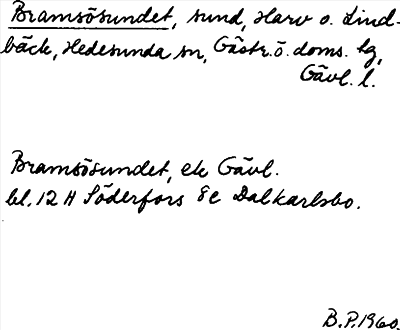 Bramsösundet, sund, Harv o. Lind-
bäck, Hedesunda sn, Gästr. ö. doms. hg,
Gävl. l.
Bramsösundet, ek Gävl.
bl. 12 H Söderfors 8c Dalkarlsbo.
B.P. 1960.